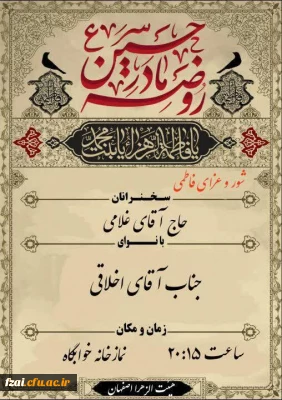 روضه مادر حسین س ع
یا فاطمة الزهرا یا بنت محمد
شور و عزای فاطمی
سخنرانان
حاج آقای غلامی
با نوای
جناب آقای اخلاقی
زمان و مکان
ساعت ۲۰:۱۵ نمازخانه خوابگاه
fzai.cfu.ac.ir
هیئت الزهرا اصفهان